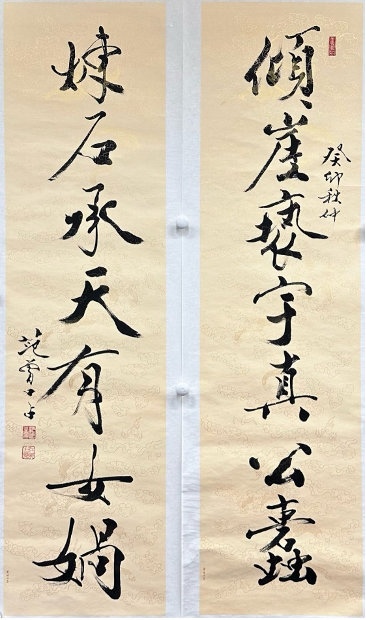 癸卯秋仲
傾崖褻宇真公蠹
煉石承天有女媧
范曾